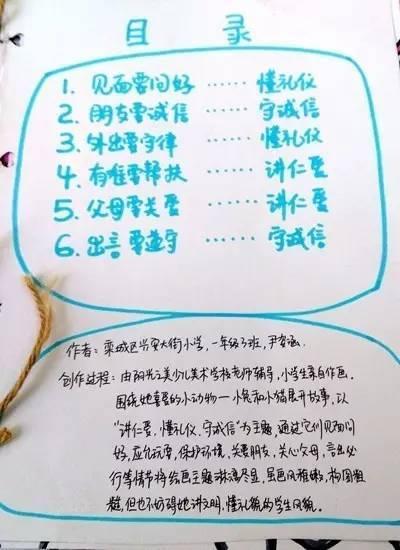 目 录
1. 见面要问好 …… 懂礼仪
2. 朋友要诚信 …… 守诚信
3. 外出要守律 …… 懂礼仪
4. 有难要帮扶 …… 讲仁爱
5. 父母要关爱 …… 讲仁爱
6. 出言要遵守 …… 守诚信
作者：栾城区兴安大街小学，一年级3班，尹
创作过程：由阳光之美少儿美术学校老师辅导，小学生亲自作画。
围绕她喜爱的小动物—小兔和小猫展开故事，以
"讲仁爱、懂礼仪、守诚信"为主题，通过它们见面问
好，应允玩耍，保护环境，关爱朋友，关心父母，言出必
行等情节将绘画主题淋漓尽显，虽画风稚嫩，构图粗
糙，但也不妨碍她讲文明，懂礼貌的学生风貌。